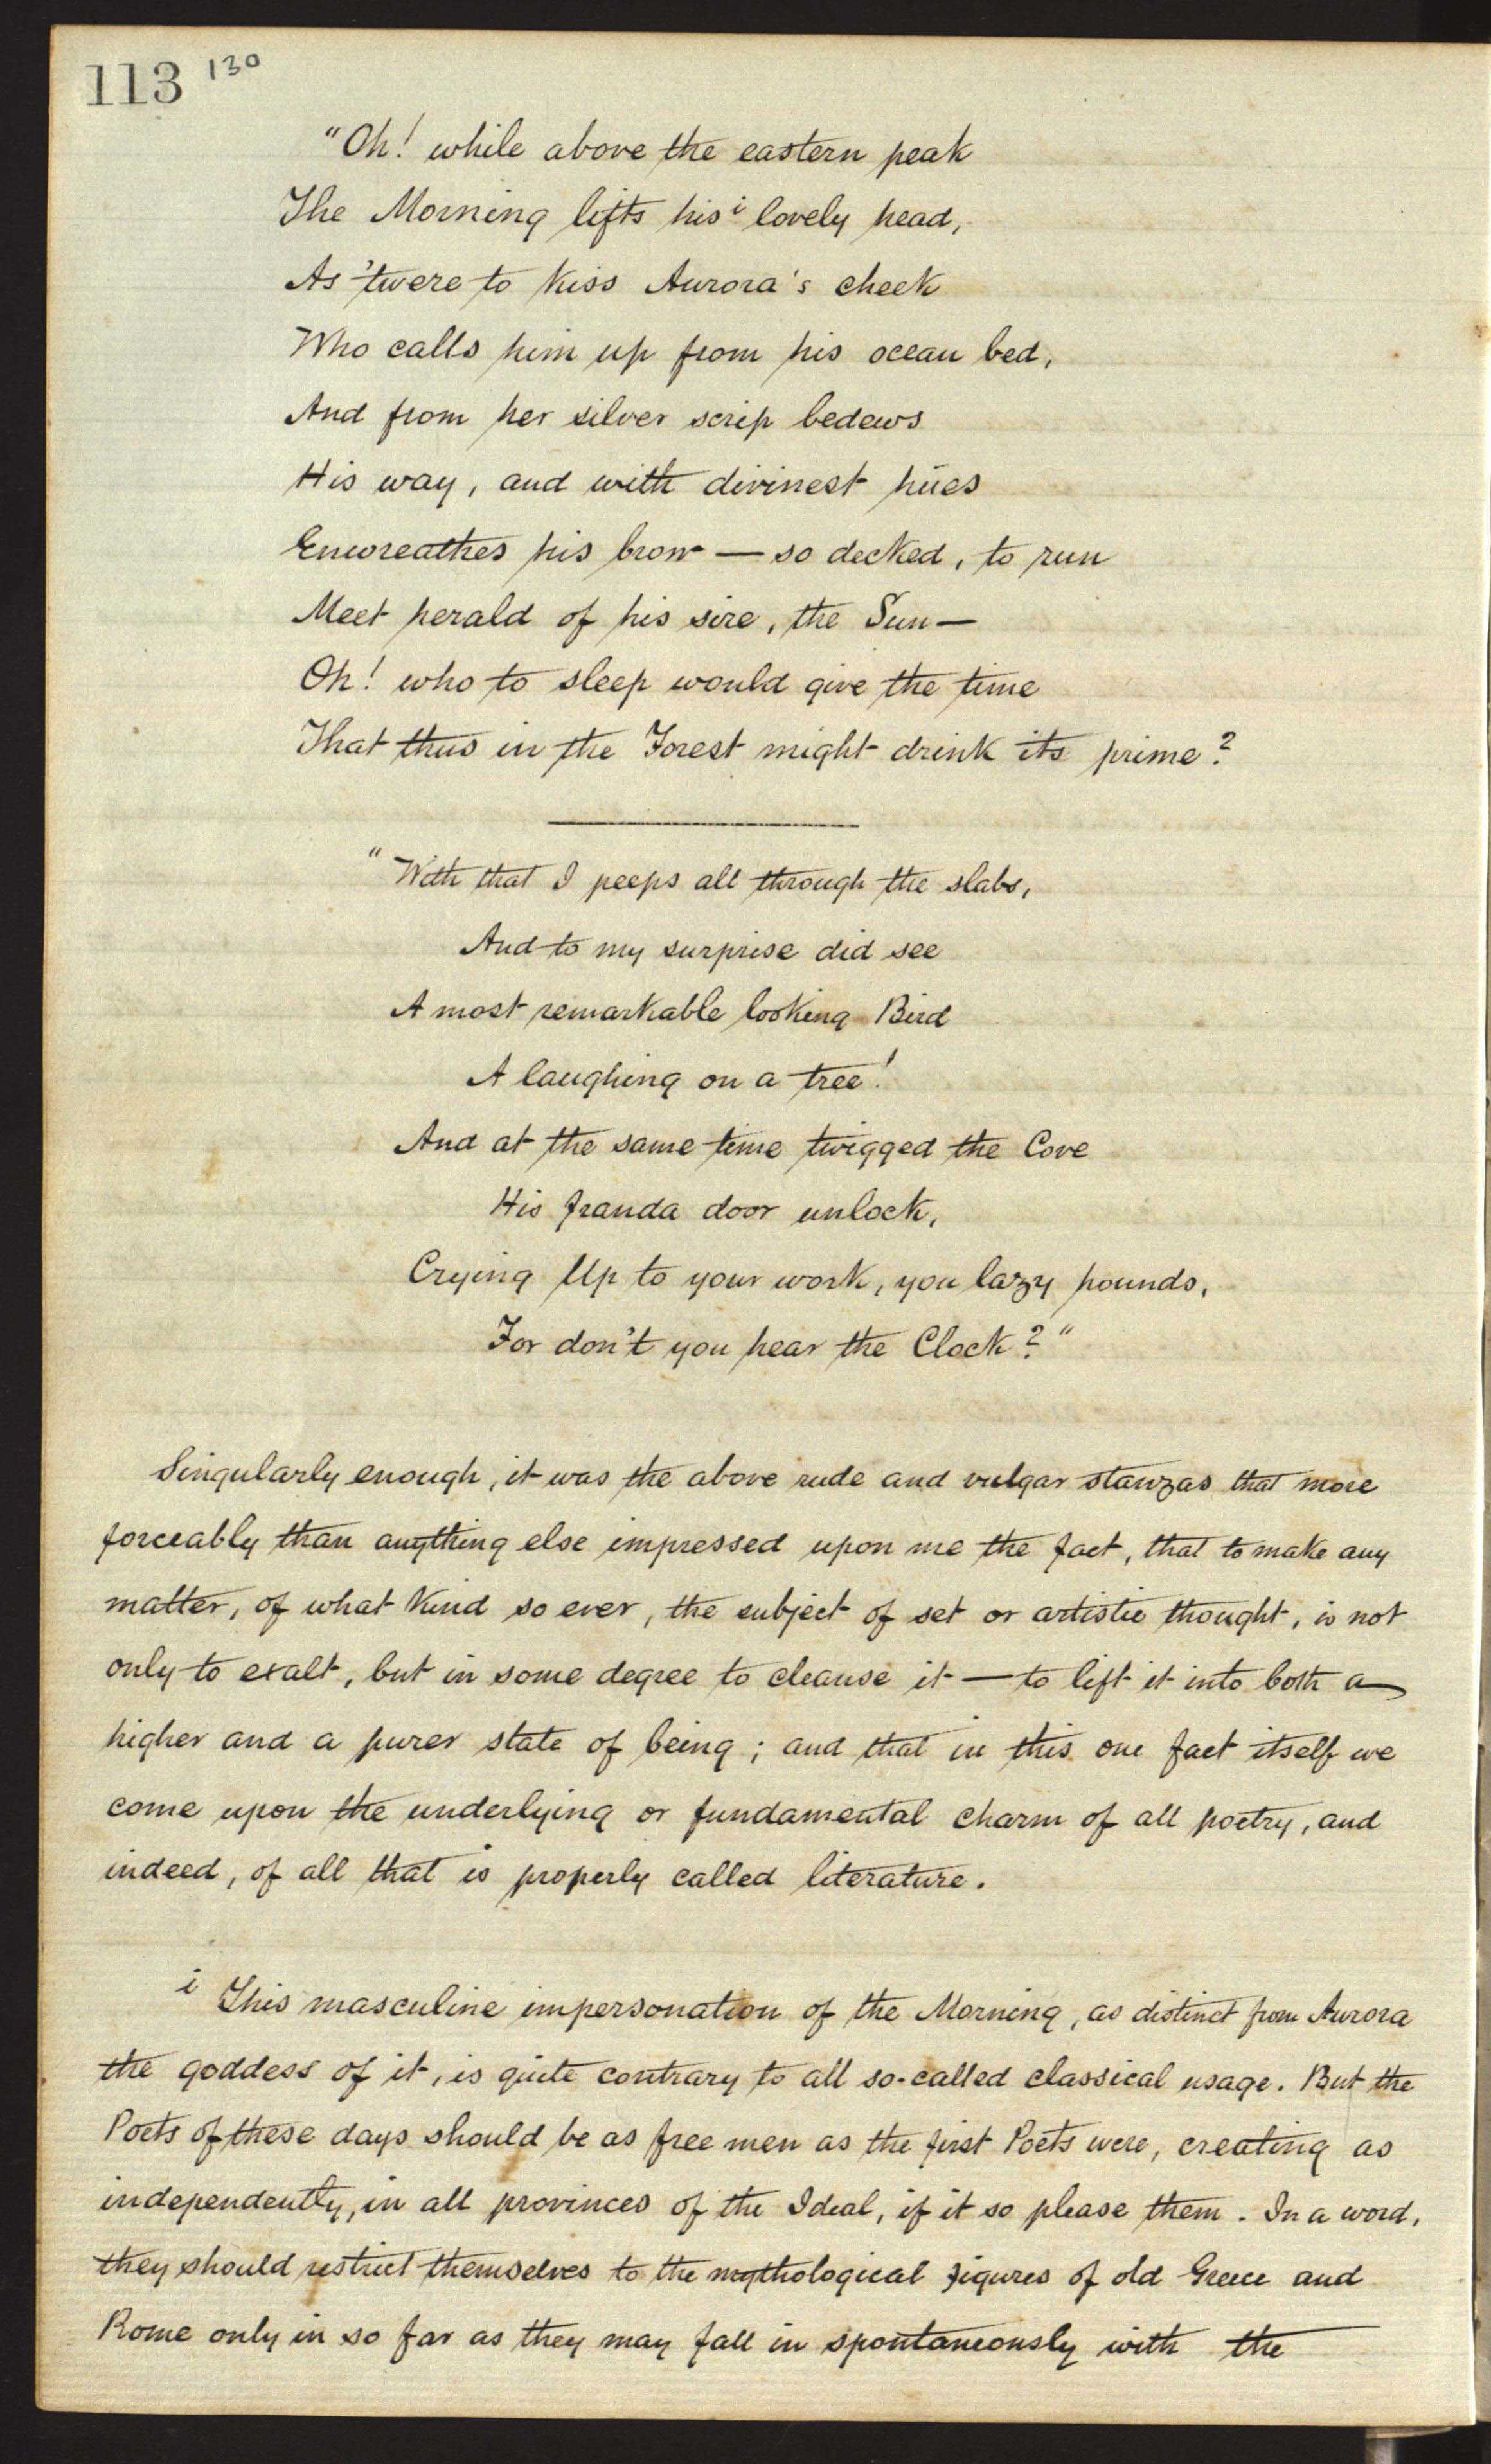 113 130
"Oh! while above the eastern peak
The Morning lifts his i lovely head,
As 'twere to kiss Aurora's cheek
Who calls him up from his ocean bed,
And from her silver scrip bedews
His way, and with divinest hues
Enwreathes his brow — so decked, to run
Meet herald of his sire, the Sun —
Oh! who to sleep would give the time
That thus in the Forest might drink its prime?
"With that I peeps all through the slabs,
And to my surprise did see
A most remarkable looking Bird
A laughing on a tree!
And at the same time twigged the Cove
His franda door unlock,
Crying Up to your work, you lazy hounds,
For don't you hear the Clock?"
Singularly enough, it was the above rude and vulgar stanzas that more
forceably than anything else impressed upon me the fact, that to make any
matter, of what kind so ever, the subject of set or artistic thought, is not
only to exalt, but in some degree to cleanse it — to lift it into both a
higher and a purer state of being; and that in this one fact itself we
come upon the underlying or fundamental charm of all poetry, and
indeed, of all that is properly called literature.
i This masculine impersonation of the Morning, as distinct from Aurora
the goddess of it, is quite contrary to all so-called classical usage. But the
Poets of these days should be as free men as the first Poets were, creating as
independently, in all provinces of the Ideal, if it so please them. In a word,
they should restrict themselves to the mythological figures of old Greece and
Rome only in so far as they may fall in spontaneously with the